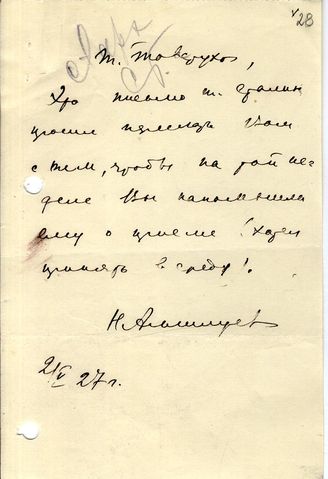 28
т. Товстуха,
Это письмо т. Сталин
просил передать Вам
с тем, чтобы на той не-
деле Вы напомнили
ему о приеме (хотел
принять в среду).
Н Аллилуева
21/V 27 г.